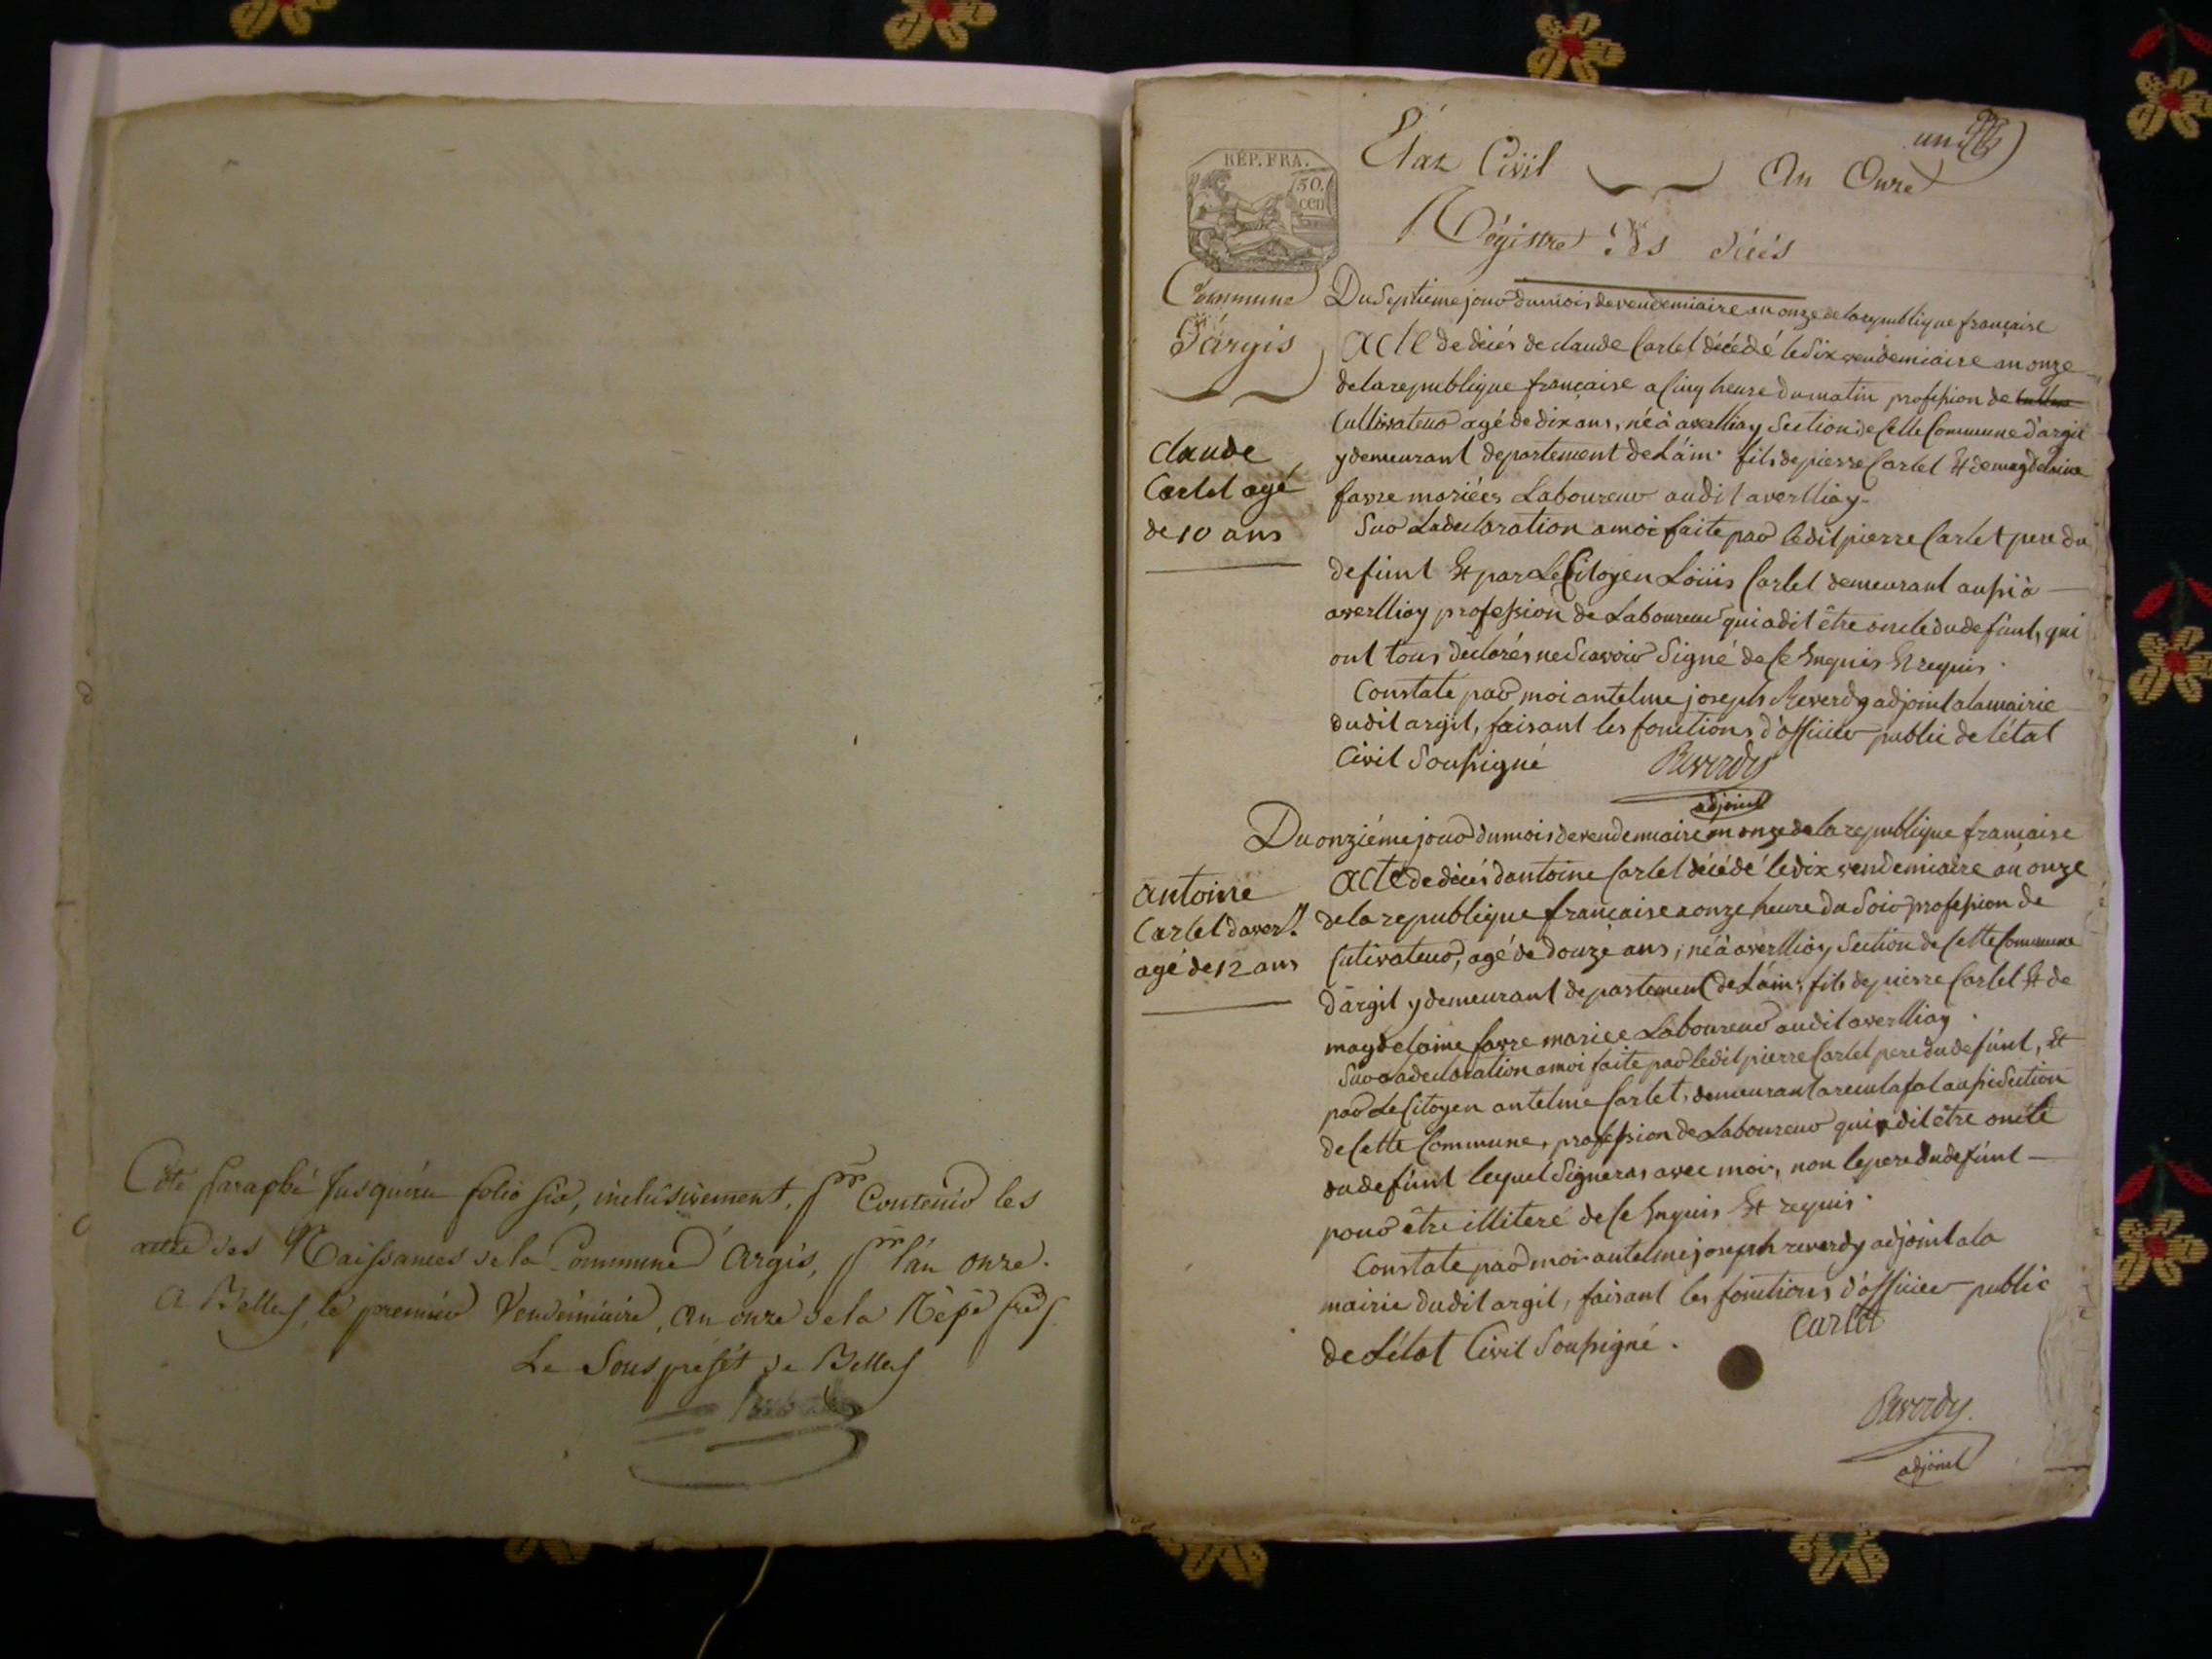 Coté Paraphé Jusqu'au folio six, inclusivement, pr Contenir les
actes des Naissances de la Commune d'Argis, pr l'an onze.
A Belley, le premier Vendemiaire, an onze de la Rép. fse
Le Sous préfet de Belley
un
REP. FRA.
50.
cen
Etat Civil An Onze
Régistre des décés
Commune
d'argis
Du Septieme jour du mois de vendemiaire an onze de la republique française
Acte de décés de claude Carlet décédé le Six vendemiaire an onze
de la republique française a Cinq heure du matin profession de
Cultivateur agé de dix ans, né à averlliay Section de Cette Commune d'argit
y demeurant departement de L'ain. fils de pierre Carlet Et de magdelaine
favre mariées Laboureur audit averlliay.
claude
Carlet agé
de 10 ans
Sur La declaration a moi faite par ledit pierre Carlet pere du
defunt Et par Le Citoyen Loüis Carlet demeurant aussi à
averlliay profession de Laboureur qui a dit être oncle du defunt, qui
ont tous declarés ne Scavoir Signé de Ce Enquis Et requis.
Constaté par moi antelme joseph Reverdy adjoint a la mairie
dudit argit, faisant les fonctions d'officier public de l'état
Civil Soussigné Reverdy
adjoint
Du onziéme jour du mois de vendemiaire an onze de la republique francaise
Acte de décés d'antoine Carlet décédé le dix vendemiaire an onze
de la republique francaise a onze heure du Soir profession de
Cutivateur, agé de douze ans, né à averlliay Section de Cette Commune
d'argit y demeurant departement de L'ain, fils de pierre Carlet Et de
magdelaine favre mariee Laboureur audit averlliay.
antoine
Carlet d'averll.
agé de 12 ans
Sur la declaration a moi faite par ledit pierre Carlet pere du defunt, Et
par Le Citoyen antelme Carlet, demeurant a reculafol aussi Section
de Cette Commune, profession de Laboureur qui a dit être oncle
du defunt lequel Signeras avec moi, non le pere du defunt
pour être illiteré de Ce Enquis Et requis.
Constaté par moi antelme joseph reverdy adjoint a la
mairie dudit argit, faisant les fonctions d'officier public
de L'état Civil Soussigné. Carlet
Reverdy
adjoint